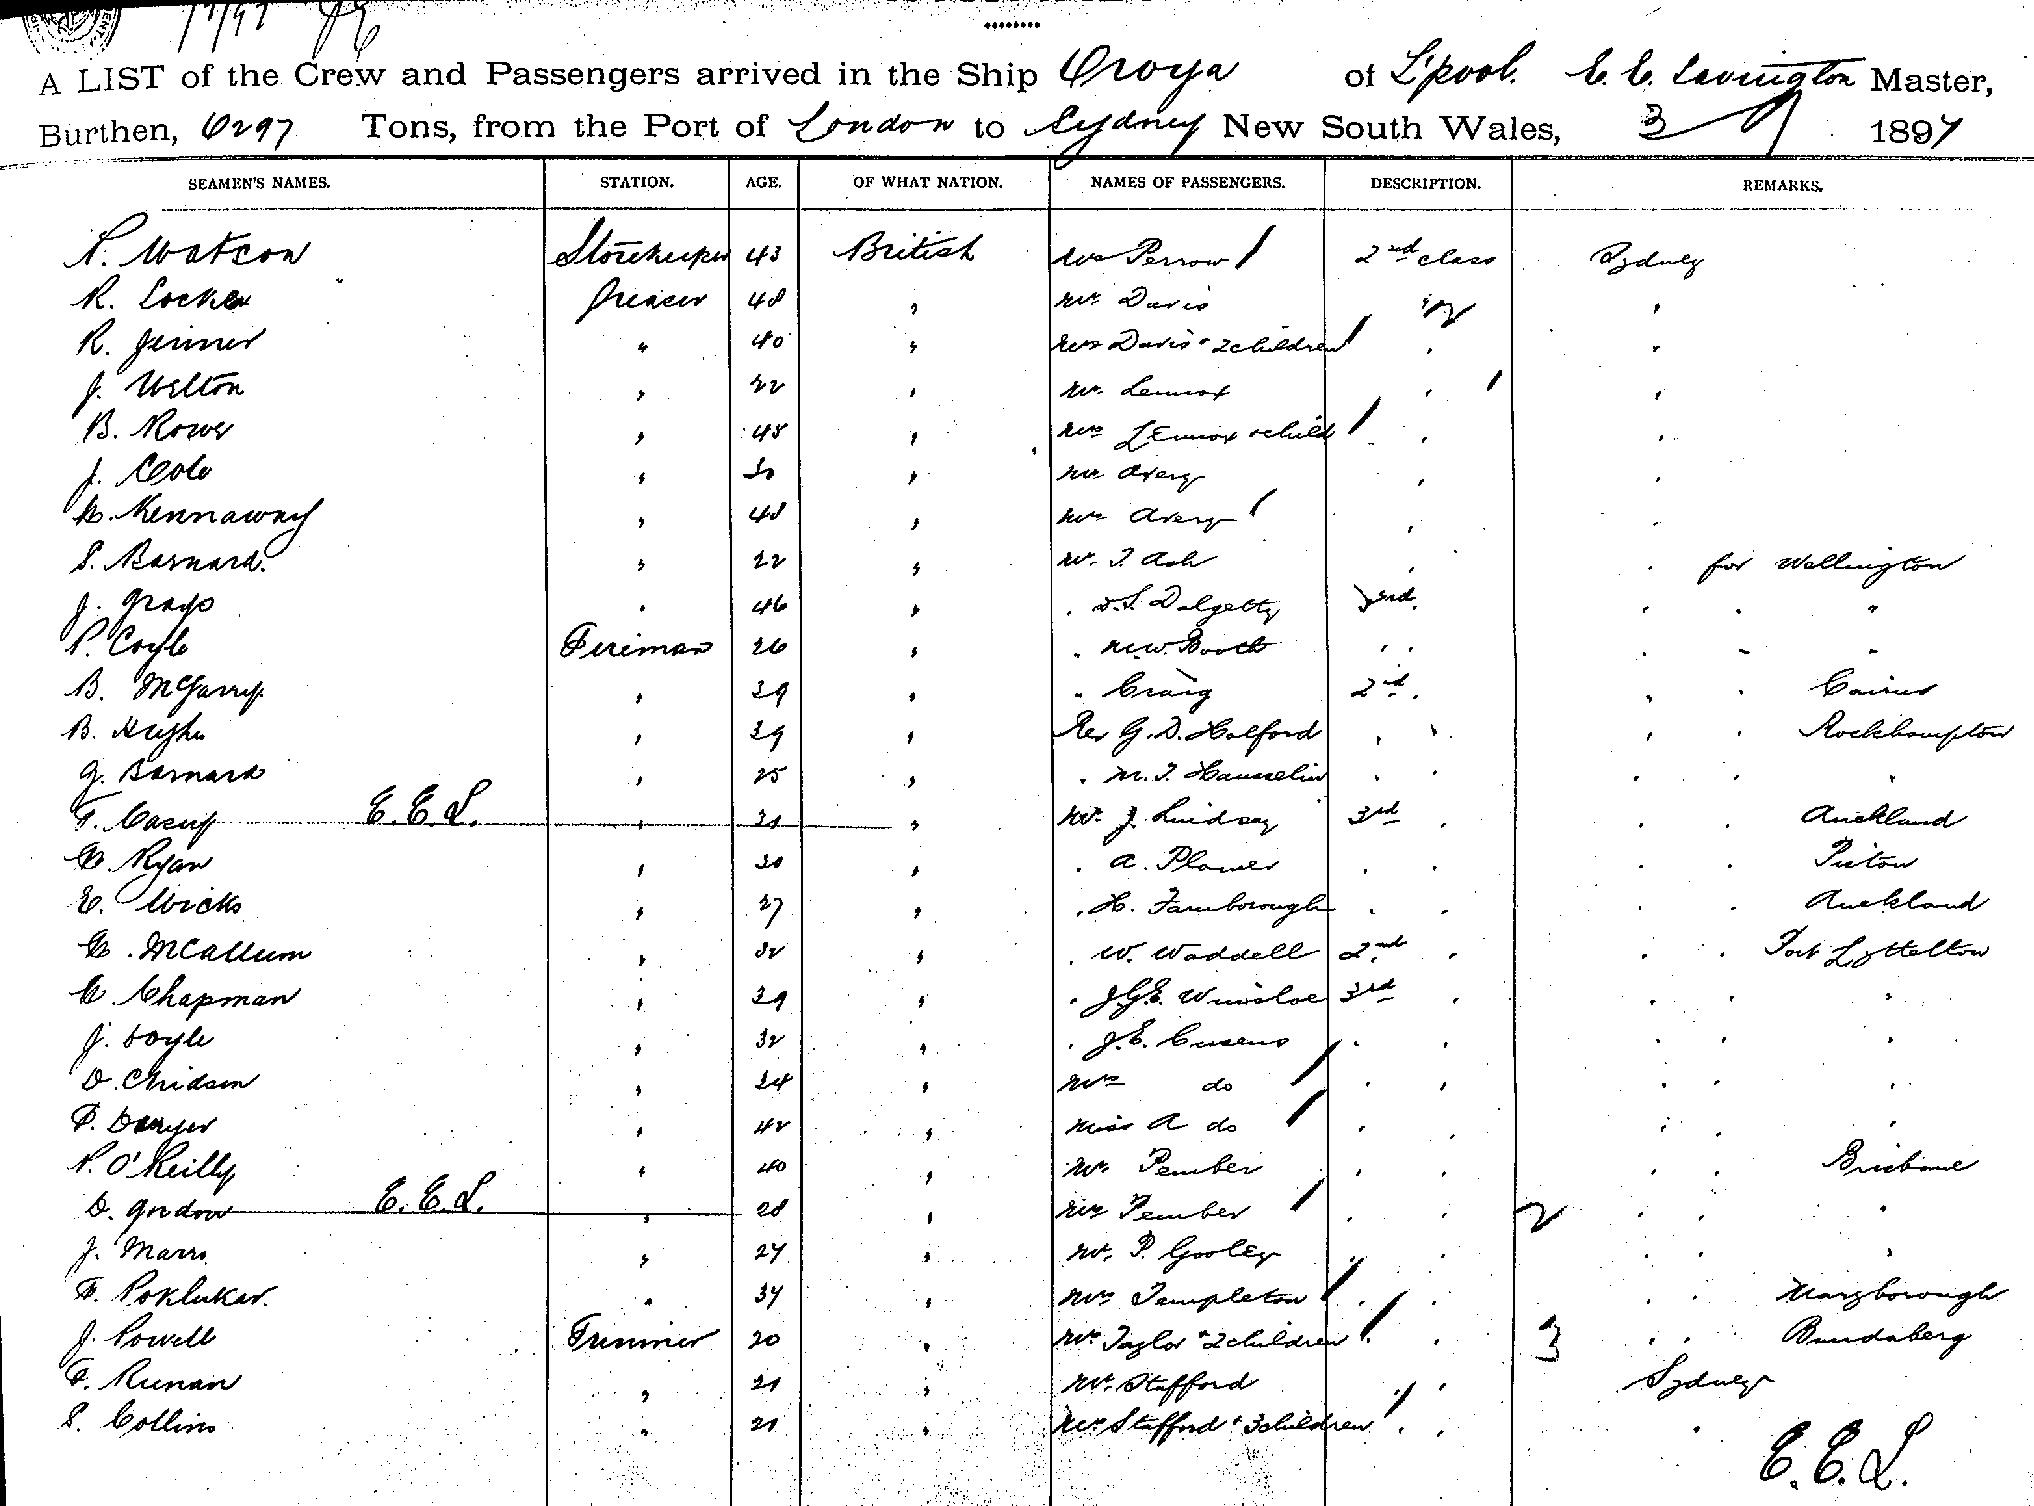 A LIST of the Crew and Passengers arrived in the Ship Oroya of L'pool. E. E. Lavington Master,
Burthen, 6297 Tons, from the Port of London to Sydney New South Wales, 3 1897
SEAMEN'S NAMES. STATION. AGE. OF WHAT NATION. NAMES OF PASSENGERS. DESCRIPTION. REMARKS.
P. Watson Storekeeper 43 British Mrs Perrow 2nd class Sydney
R. Locke Greaser 48 " Mr Davis " "
R. Jenner " 40 " Mrs Davis & 2 children " "
J. Welton " 22 " Mr. Lennox " "
B. Rowe " 48 " Mrs Lennox & child " "
J. Cole " 30 " Mr Avery " "
Kennaway " 48 " Mrs Avery " "
S. Barnard. " 22 " Mr. T. Ash " " for Wellington
J. Grays " 46 " " D.S. Dalgetty 3rd. " " "
P. Coyle Fireman 26 " " M.W. Booth " " " " "
B. McGarry " 39 " " Craig 2nd. " " Cairns
B. Hughes " 39 " Rev G. D. Halford " " " " Rockhampton
G. Barnard " 25 " " M. T. Hausselin " " " " "
T. Casey E. E. L. " 31 " Mr. J. Lindsay 3rd " " " Auckland
C. Ryan " 30 " " A. Plower " " " " Picton
E. Wicks " 37 " " H. Farnborough " " " " Auckland
McCallum " 32 " " W. Waddell 2nd " " " Port Lyttelton
C. Chapman " 39 " " J.G.E. Winsloe 3rd " " " "
J. Doyle " 32 " " J.E. Cusens " " " " "
D. Chidson " 34 " Mrs do " " " " "
P. Dwyer " 42 " Miss A do " " " " "
P. O'Reilly " 40 " Mr. Pember " " " " Brisbane
D. Gordon E. E. L. " 28 " Mrs Pember " " 2 " " "
J. Marrs. " 27 " Mr. P. Gooley " " " " "
F. Poklukar. " 37 " Mrs Templeton " " " " Maryborough
J. Powell Trimmer 20 " Mrs Taylor & 2 children " " 3 " " Bundaberg
F. Runan " 21 " Mr. Stafford " " Sydney
S. Collins " 21 " Mrs Stafford & 3 children " " "
E. E. L.